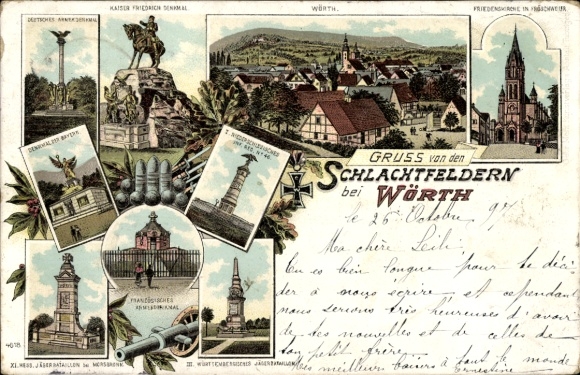 DEUTSCHES ARMEE DENKMAL
KAISER FRIEDRICH DENKMAL
WÖRTH.
FRIEDENSKIRCHE IN FRÖSCHWEILER
DENKMAL DER BAYERN.
2. NIEDERSCHLESISCHES
INF. REG. Nº 46.
GRUSS von den
SCHLACHTFELDERN
bei WÖRTH
FRANZÖSISCHES
ARMEEDENKMAL
XI. HESS. JÄGERBATAILLON bei MORSBRONN.
III. WÜRTTEMBERGISCHES JÄGERBATAILLON.
4618
le 26 Octobre 97
Ma chère
Tu es bien longue pour te déci
der à nous écrire et cependant
nous serions très heureuses d'avoir
de tes nouvelles et de celles de
ton petit frère.
meilleurs baisers à tout le monde
Ernestine